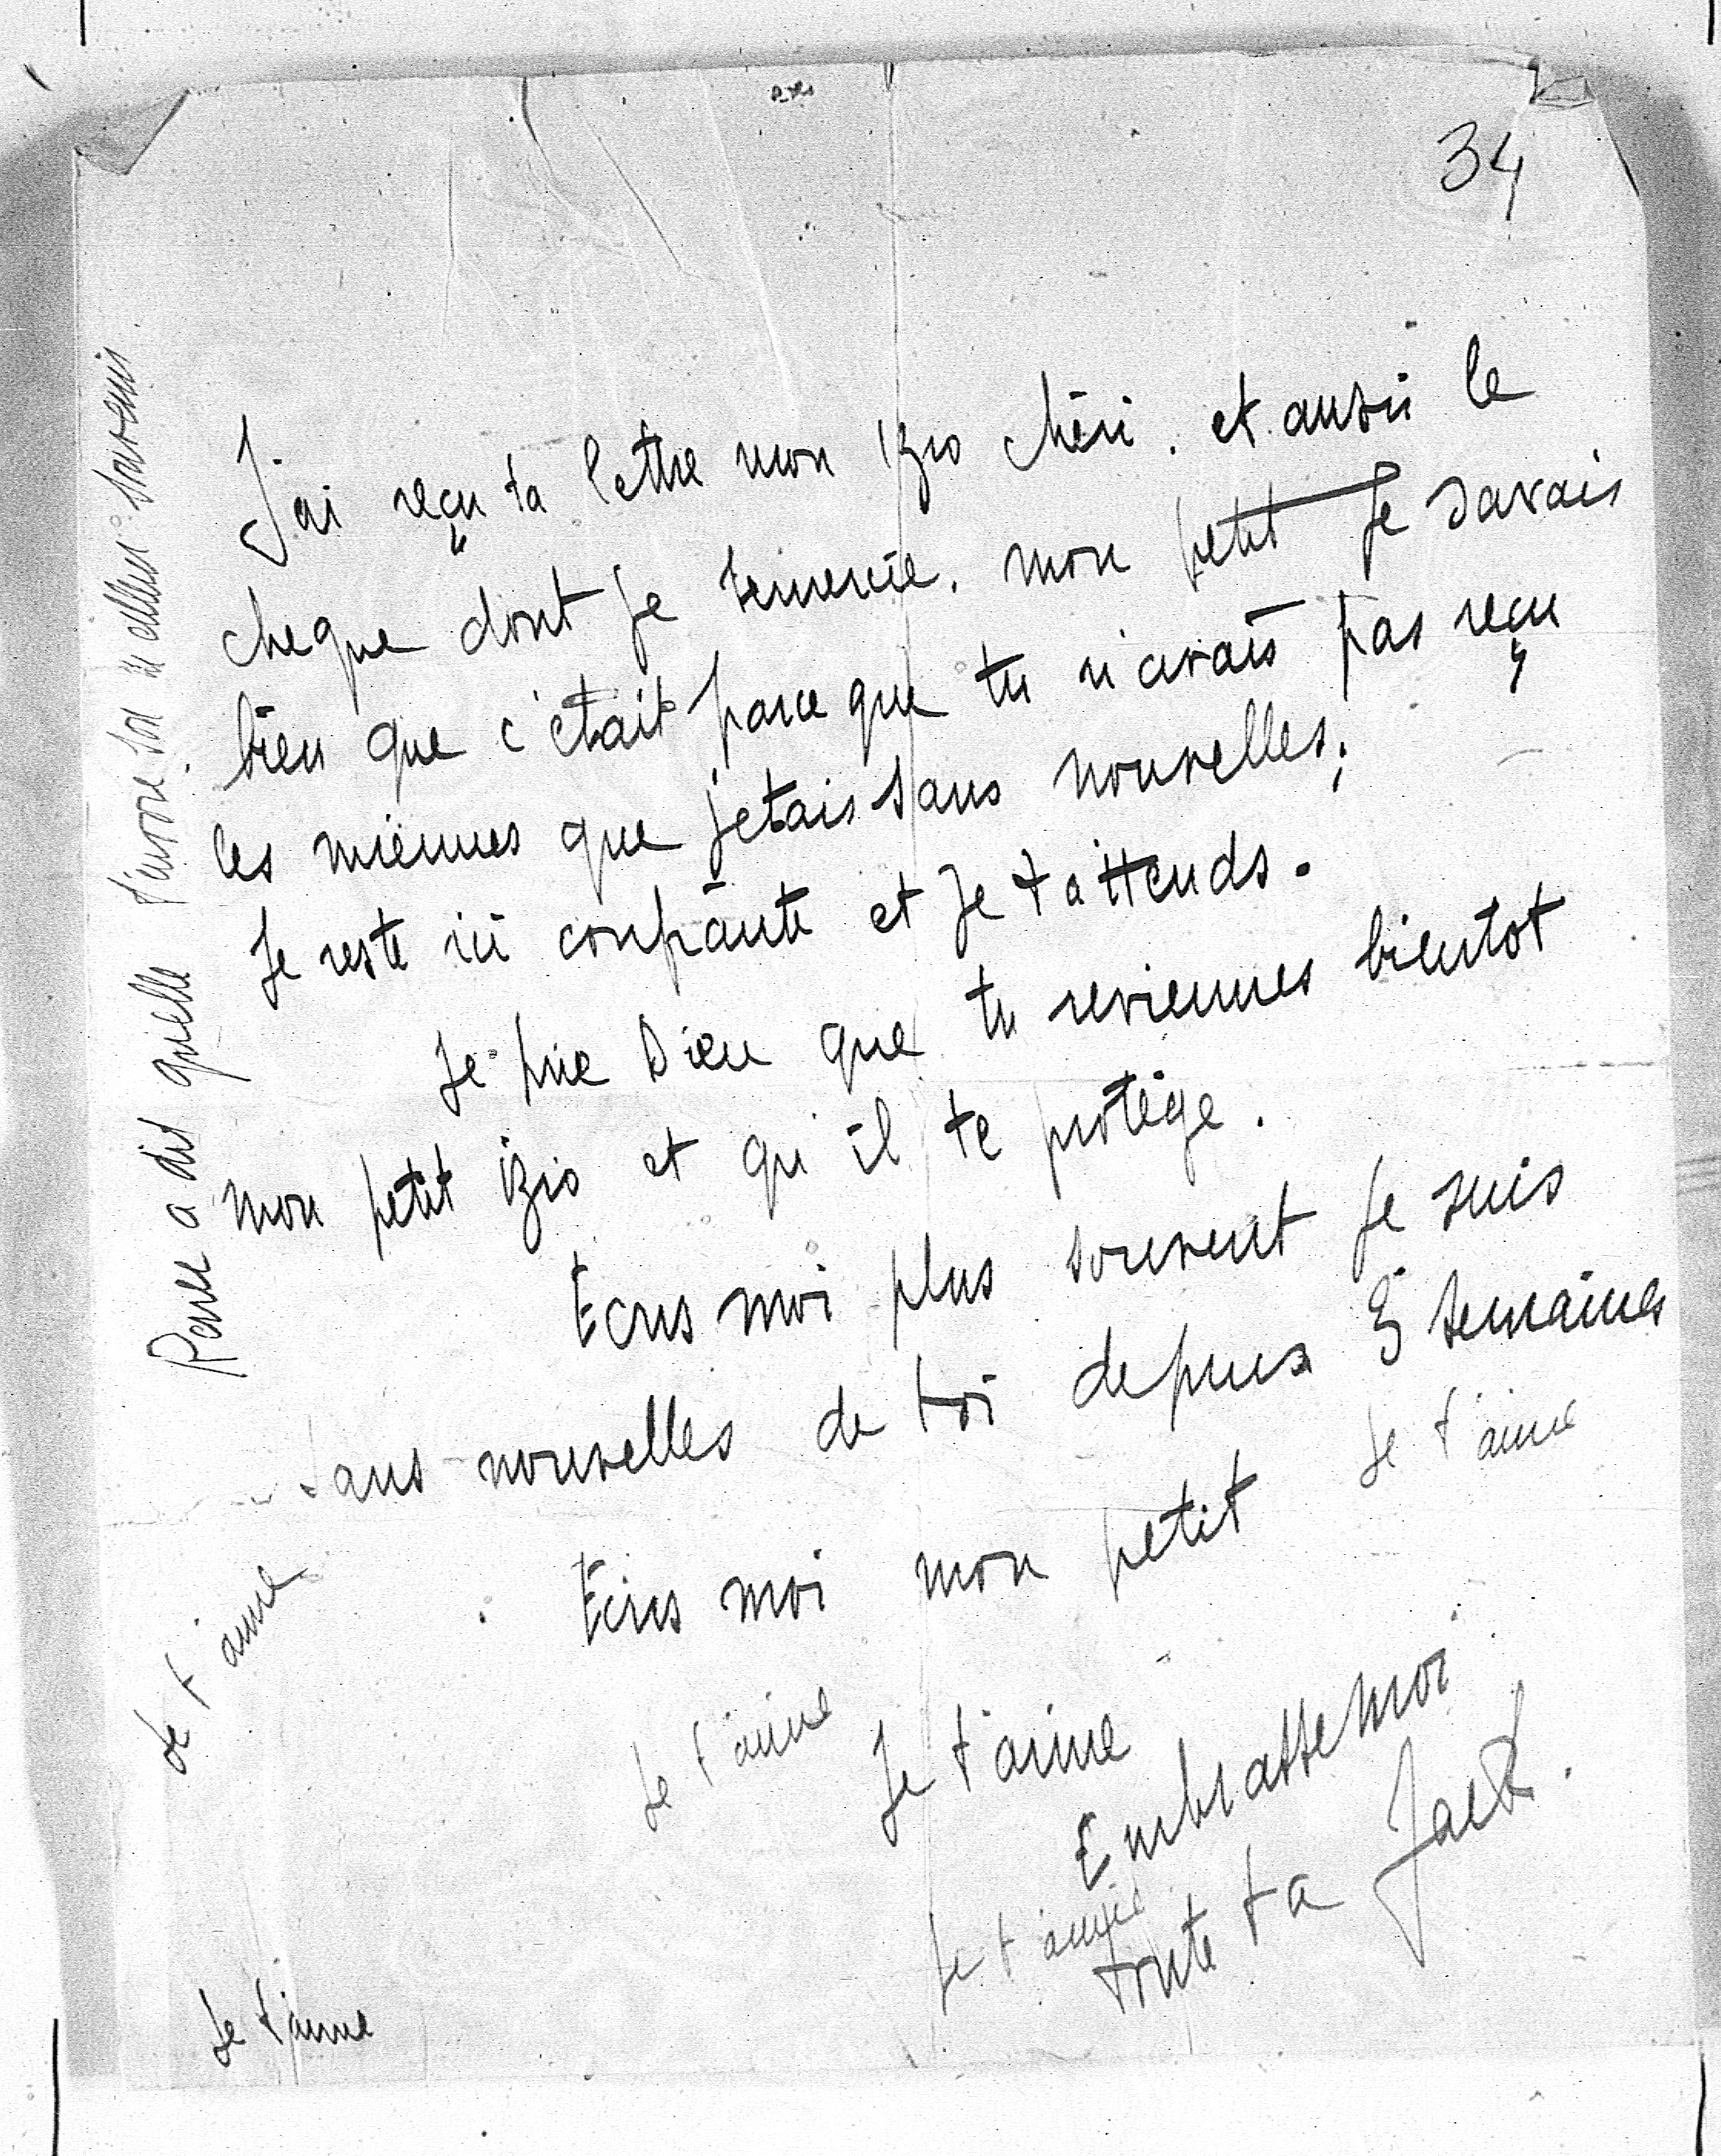 34
J'ai reçu ta lettre mon Izio chéri. et aussi le
cheque dont je remercie. mon petit je savais
bien que c'etait parce que tu n'avais pas reçu
les miennes que j'etais sans nouvelles;
Je reste ici confiante et je t'attends.
Je prie Dieu que tu reviennes bientot
mon petit izio et qu'il te protège.
Ecris moi plus souvent je suis
sans nouvelles de toi depuis 3 semaines
Je t'aime
Ecris moi mon petit
Je t'aime
Je t'aime
Je t'aime
Embrasse moi
Je t'aime
toute ta Jack.
Je t'aime
a dit quelle t'envoie son meilleur souvenir